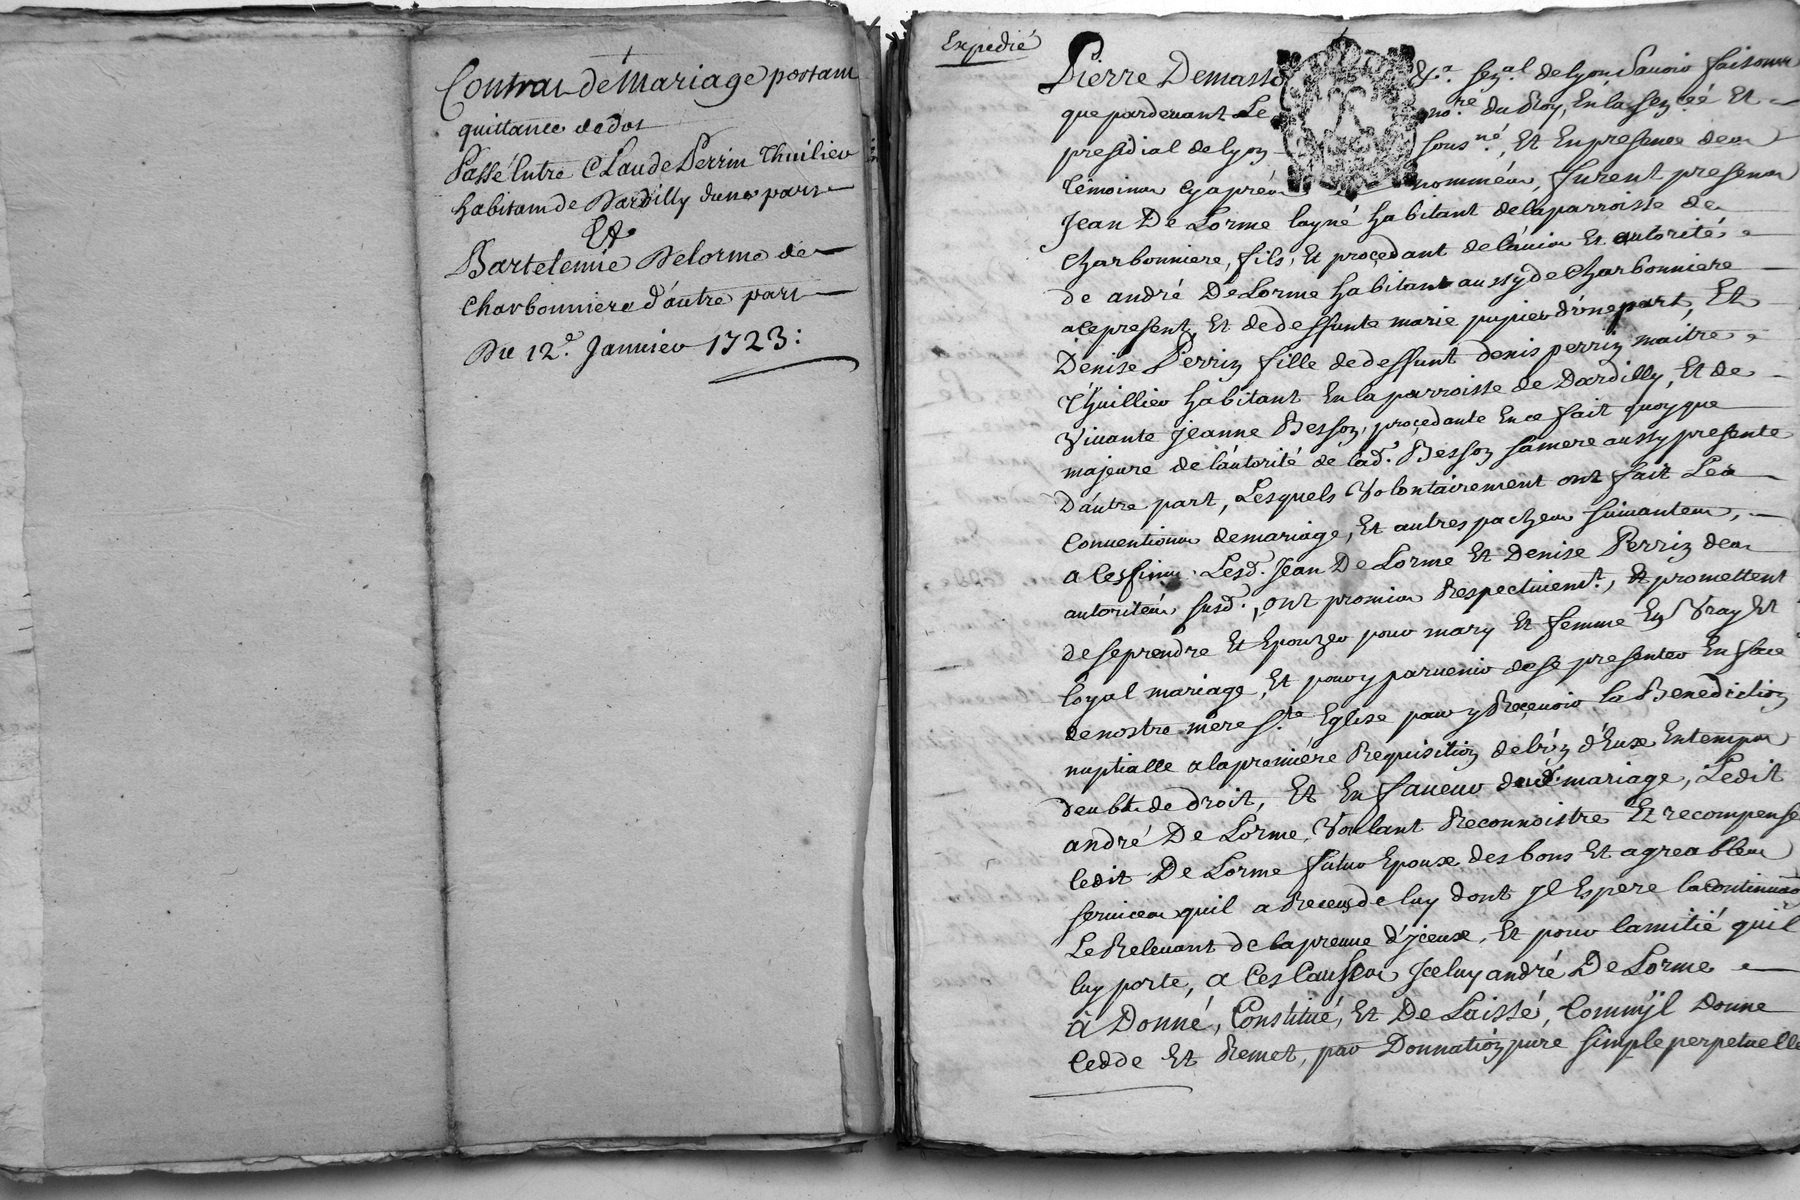 Contrat de Mariage portant
quittance de dot
Passé Entre Claude Perrin Thuilier
habitant de Dardilly d'une part
Et
Bartelemie Delorme de
Charbonniere d'autre part
Du 12e. Janvier 1723:
Expedié
Pierre Demasso &a. seṇal de lyon Savoir faisons
que pardevant Le nore du Roy, En la senceé Et
presidial de lyon sousné, Et En presence des
témoins cyaprés nommés, furent presens
Jean De Lorme layné habitant de laparroisse de
Charbonniere, fils, Et procedant de lavis Et autorité
de andré De Lorme habitant aussy de Charbonniere
ace present, Et de deffunte marie pupier d'une part, Et
Denise Perrin fille de deffunt denis perrin maitre
Thuillier habitant En la parroisse de Dardilly, Et de
Vivante Jeanne Besson, procedante En ce fait quoyque
majeure de l'autorité de lad. Besson samere aussy presente
D'autre part, Lesquels Volontairement ont fait Les
Conventions demariage, Et autres paches suivantes,
a Cesfins. Lesd. Jean De Lorme Et Denise Perrin des
autorités susd., ont promis Respectivemt., Et promettent
de seprendre Et Epouzer pour mary Et femme En Vray Et
loyal mariage, Et pour y parvenir de se presenter En face
denostre mere Ste Eglise pour y Recevoir la Benediction
nuptialle a lapremiére Requisition de l'un d'Eux Entemps
deubt de droit, Et En faveur dud. mariage, Ledit
andré De Lorme, Voulant Reconnoistre Et recompenser
ledit De Lorme futur Epoux des bons Et agreables
services quil a Receus de luy dont jl Espere lacontinuaon
Le Relevant de lapreuve d'jceux, Et pour lamitié quil
luy porte, a Ces Causes Jceluy andré De Lorme
à Donné, Constitué, Et De Laissé, Comm'jl donne
Cedde Et Remet, par Donnation pure simple perpetuelle